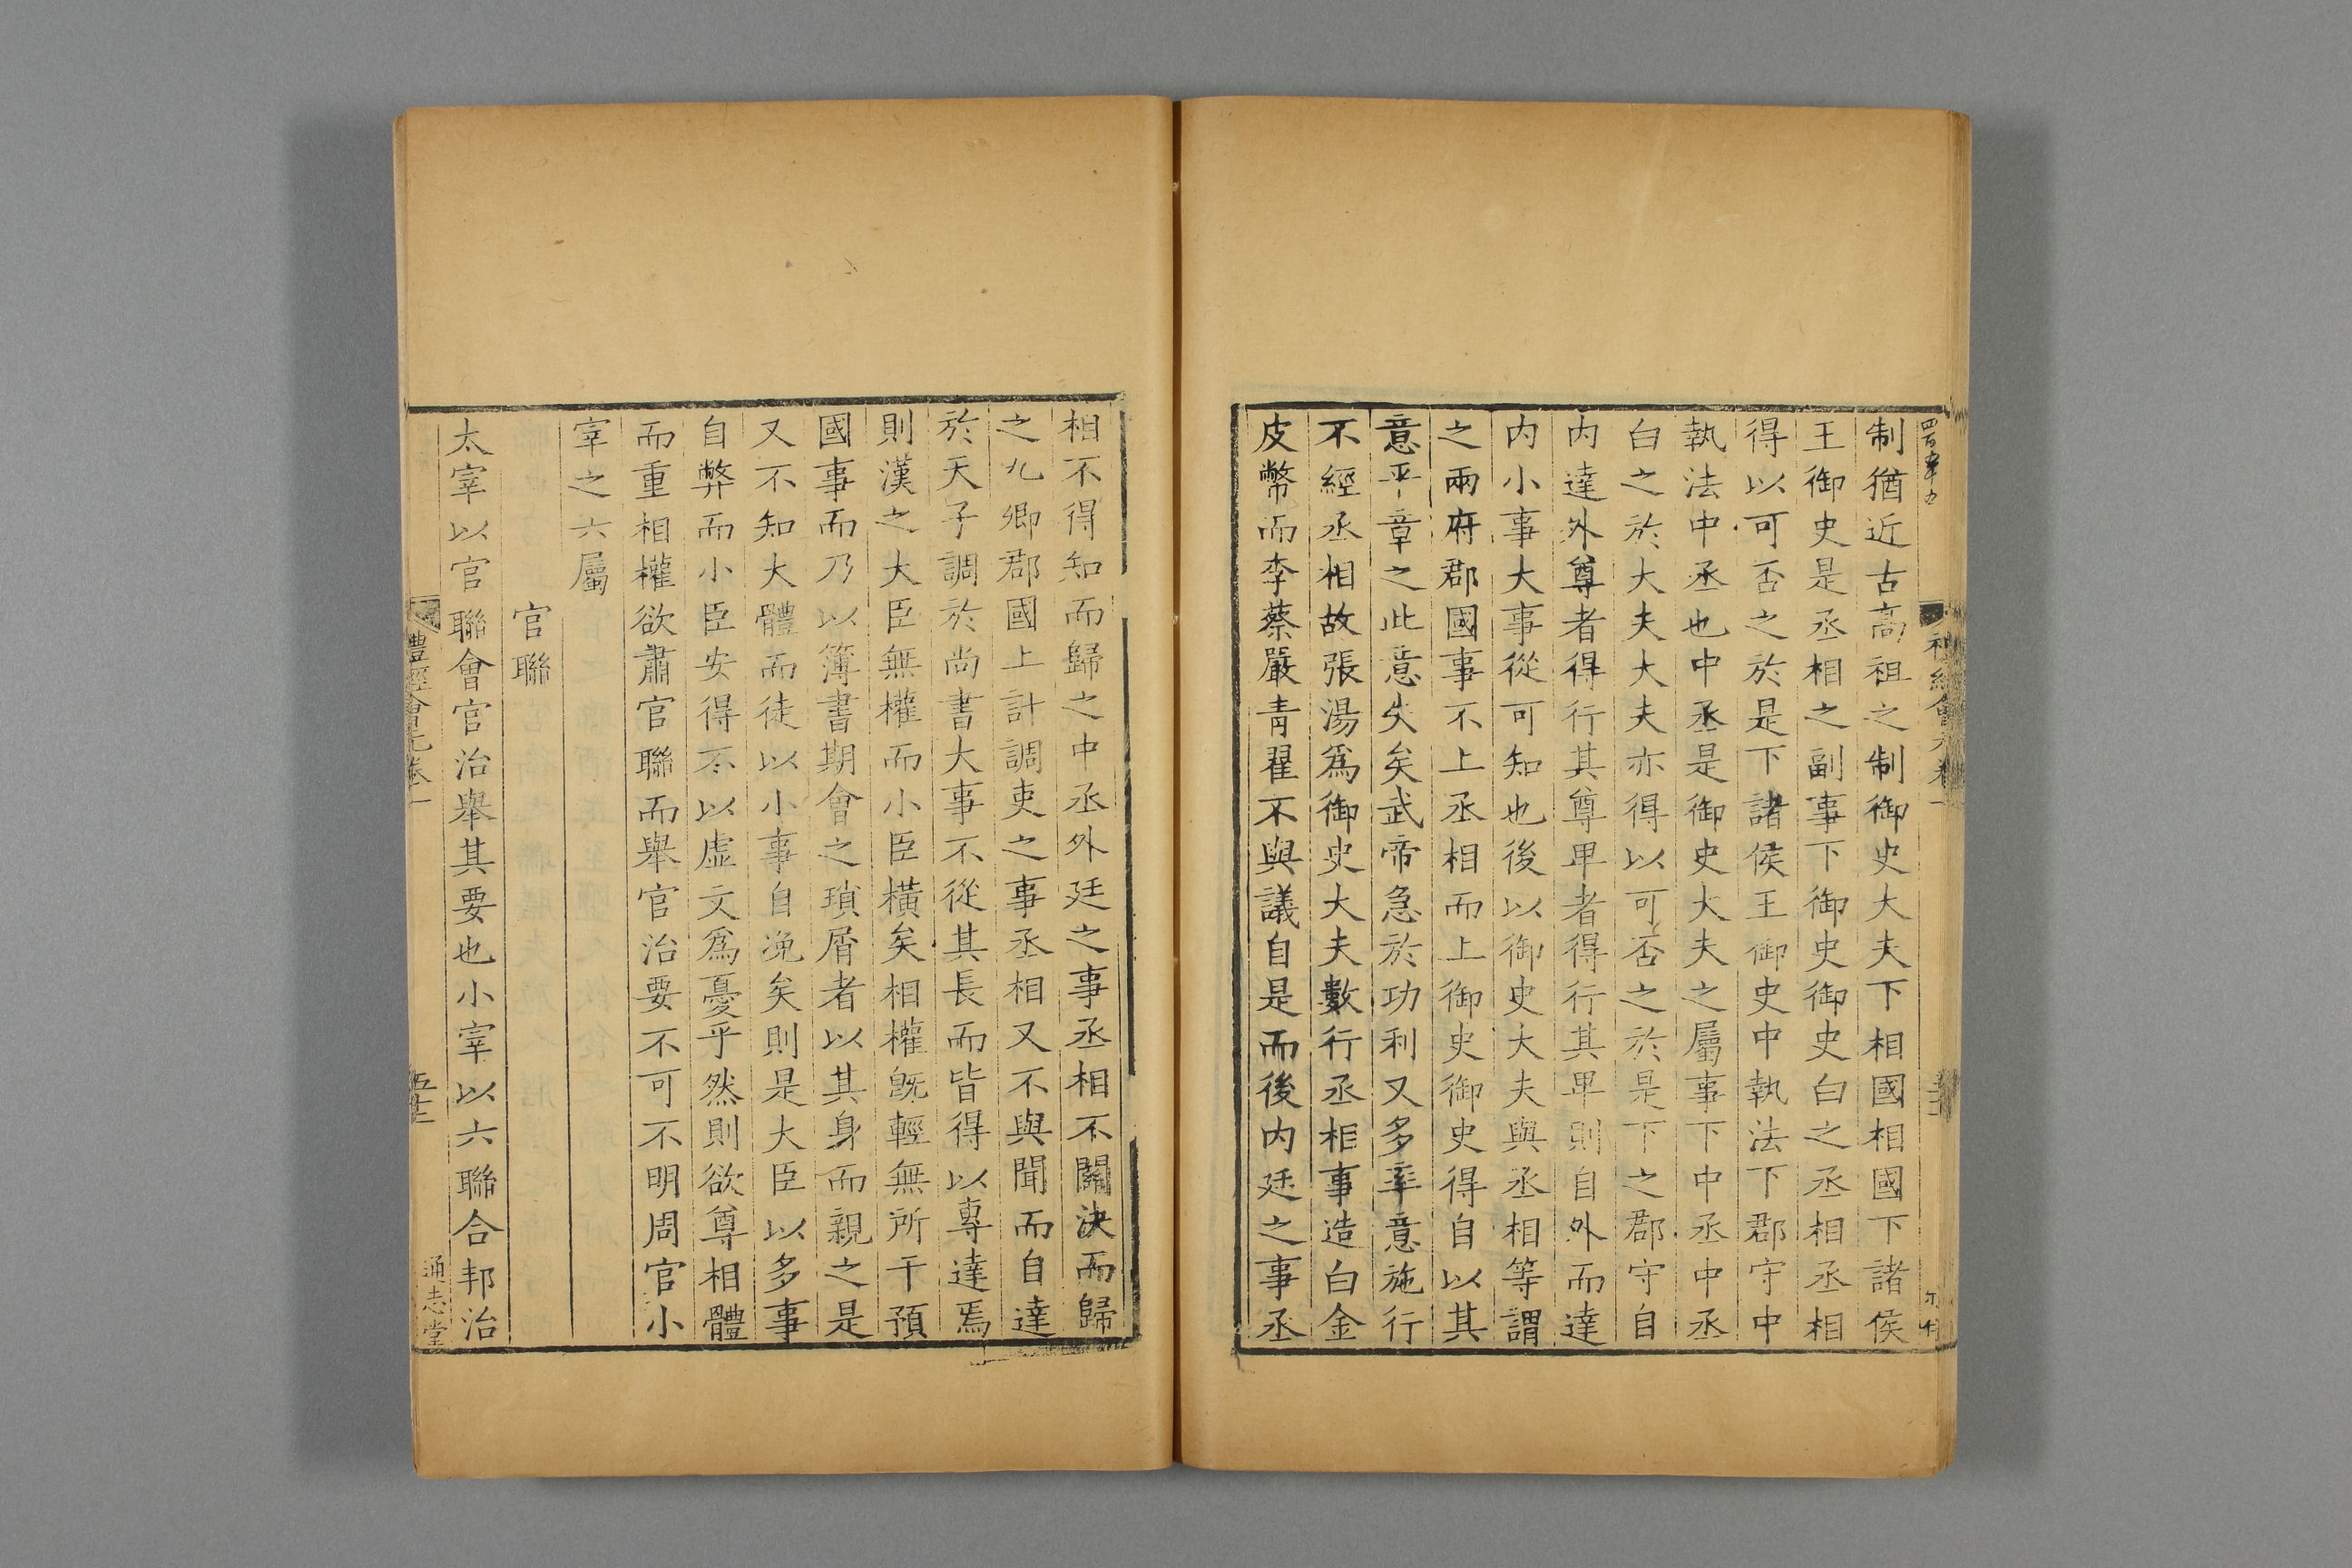 制猶近古高祖之制御史大夫下相國相國下諸侯
王御史是丞相之副事下御史御史白之丞相丞相
得以可否之於是下諸侯王御史中執法下郡守中
執法中丞也中丞是御史大夫之屬事下中丞中丞
白之於大夫大夫亦得以可否之於是下之郡守自
内達外尊者得行其尊卑者得行其卑則自外而達
内小事大事從可知也後以御史大夫與丞相等謂
之兩府郡國事不上丞相而上御史御史得自以其
意平章之此意失矣武帝急於功利又多率意施行
不經丞相故張湯爲御史大夫數行丞相事造白金
皮幣而李蔡嚴青翟不與議自是而後内廷之事丞
相不得知而歸之中丞外廷之事丞相不關決而歸
之九卿郡國上計調吏之事丞相又不與聞而自達
於天子調於尚書大事不從其長而皆得以專達焉
則漢之大臣無權而小臣橫矣相權旣輕無所干預
國事而乃以簿書期會之瑣屑者以其身而親之是
又不知大體而徒以小事自浼矣則是大臣以多事
自弊而小臣安得不以虛文爲憂乎然則欲尊相體
而重相權欲肅官聯而舉官治要不可不明周官小
宰之六屬
官聯
太宰以官聯會官治舉其要也小宰以六聯合邦治
禮經會元卷一
通志堂